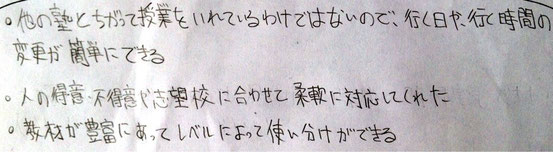 。他の塾とちがって授業をいれているわけではないので、行く日や、行く時間の
変更が簡単にできる
。人の得意・不得意や志望校に合わせて柔軟に対応してくれた
。教材が豊富にあってレベルによって使い分けができる